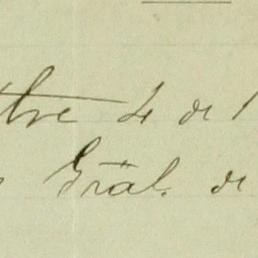 tre 4 de 1
Gral. de